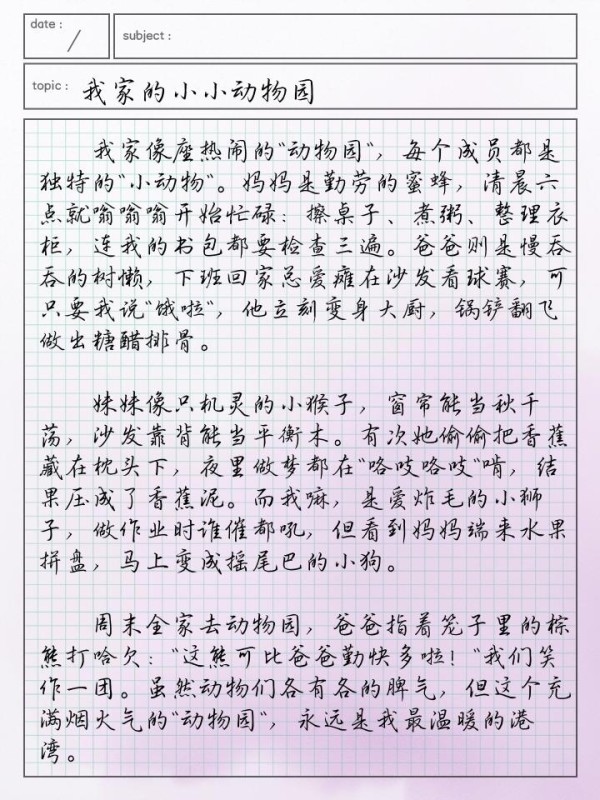 date :
subject :
topic : 我家的小小动物园
我家像座热闹的“动物园”，每个成员都是
独特的“小动物”。妈妈是勤劳的蜜蜂，清晨六
点就嗡嗡嗡开始忙碌：擦桌子、煮粥、整理衣
柜，连我的书包都要检查三遍。爸爸则是慢吞
吞的树懒，下班回家总爱瘫在沙发看球赛，可
只要我说“饿啦”，他立刻变身大厨，锅铲翻飞
做出糖醋排骨。
妹妹像只机灵的小猴子，窗帘能当秋千
荡，沙发靠背能当平衡木。有次她偷偷把香蕉
藏在枕头下，夜里做梦都在“咯吱咯吱”啃，结
果压成了香蕉泥。而我嘛，是爱炸毛的小狮
子，做作业时谁催都吼，但看到妈妈端来水果
拼盘，马上变成摇尾巴的小狗。
周末全家去动物园，爸爸指着笼子里的棕
熊打哈欠：“这熊可比爸爸勤快多啦！”我们笑
作一团。虽然动物们各有各的脾气，但这个充
满烟火气的“动物园”，永远是我最温暖的港
湾。